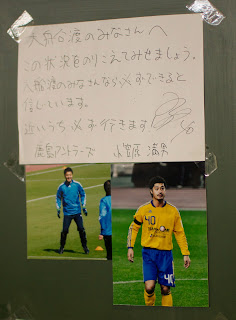 大船渡のみなさんへ
この状況をのりこえてみせましょう。
大船渡のみなさんなら必ずできると
信じています。
近いうち必ず行きます
鹿島アントラーズ 小笠原 満男
40
40